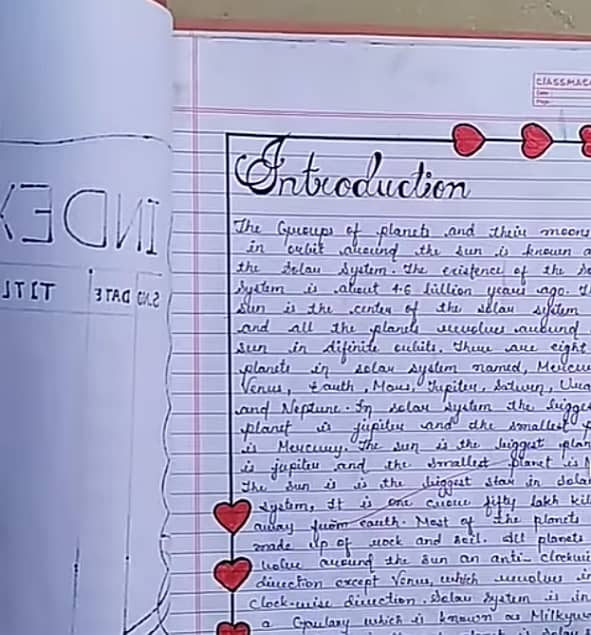 CLASSMA
Date
Page
INDEX
S.NO DATE TITL
Introduction
The Groups of planets and their moons
in orbit around the sun is known a
the solar system. The existence of the so
system is about 4.6 billion years ago. T
sun is the center of the solar system
and all the planets revolves around
sun in difinite orbits. There are eight
planets in solar system named, Mercu
Venus, Earth, Mars, Jupiter, Saturn, Ura
and Neptune. In solar system the bigge
planet is jupiter and the smallest p
is Mercury. The sun is the biggest plan
is jupiter and the smallest planet is
The sun is is the biggest star in sola
system, It is one crore fifty lakh kil
away from earth. Most of the planets
made up of rock and soil. All planets
volve around the sun an anti-clockwi
direction except Venus, which revolves in
clock-wise direction. Solar system is in
a Gaulary which is known as Milkyw